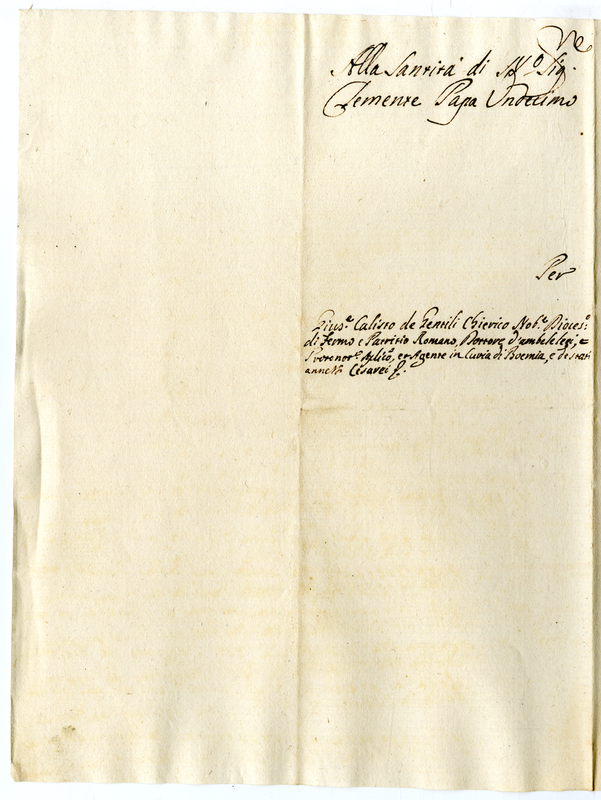 Alla Santità di N.ro Sig.
Clemente Papa Undecimo
Per
Gius.e Calisto de Gentili Chierico Nob.e Dioces.o
di Fermo e Patritio Romano, Dottore d'ambe le legi, e
Protonot.o Aplico, et Agente in Curia di Boemia, e de stati
anneˢⁱ Cesarei